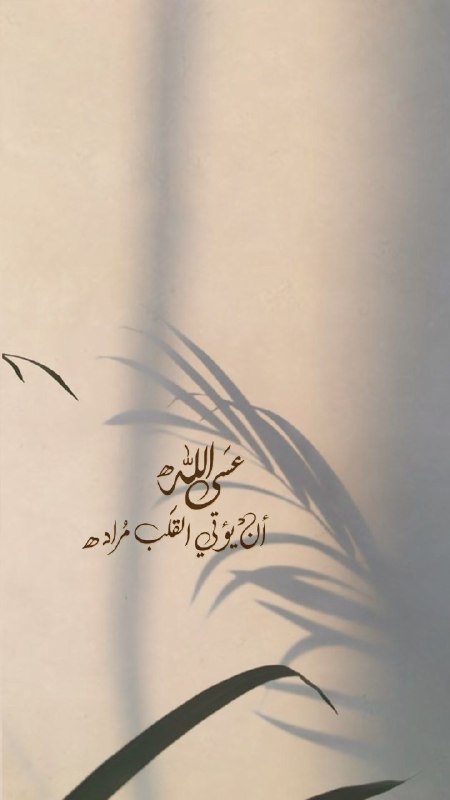 عسَى الله
أن يؤتي القلَب مُراده